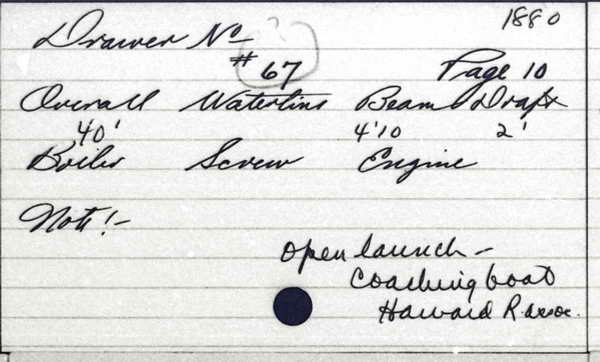 1880
Drawer No
# 67
Page 10
Overall Waterline Beam Draft
40' 4'10 2'
Boiler Screw Engine
Note!-
Open launch -
Coaching boat
Harvard R. assoc.